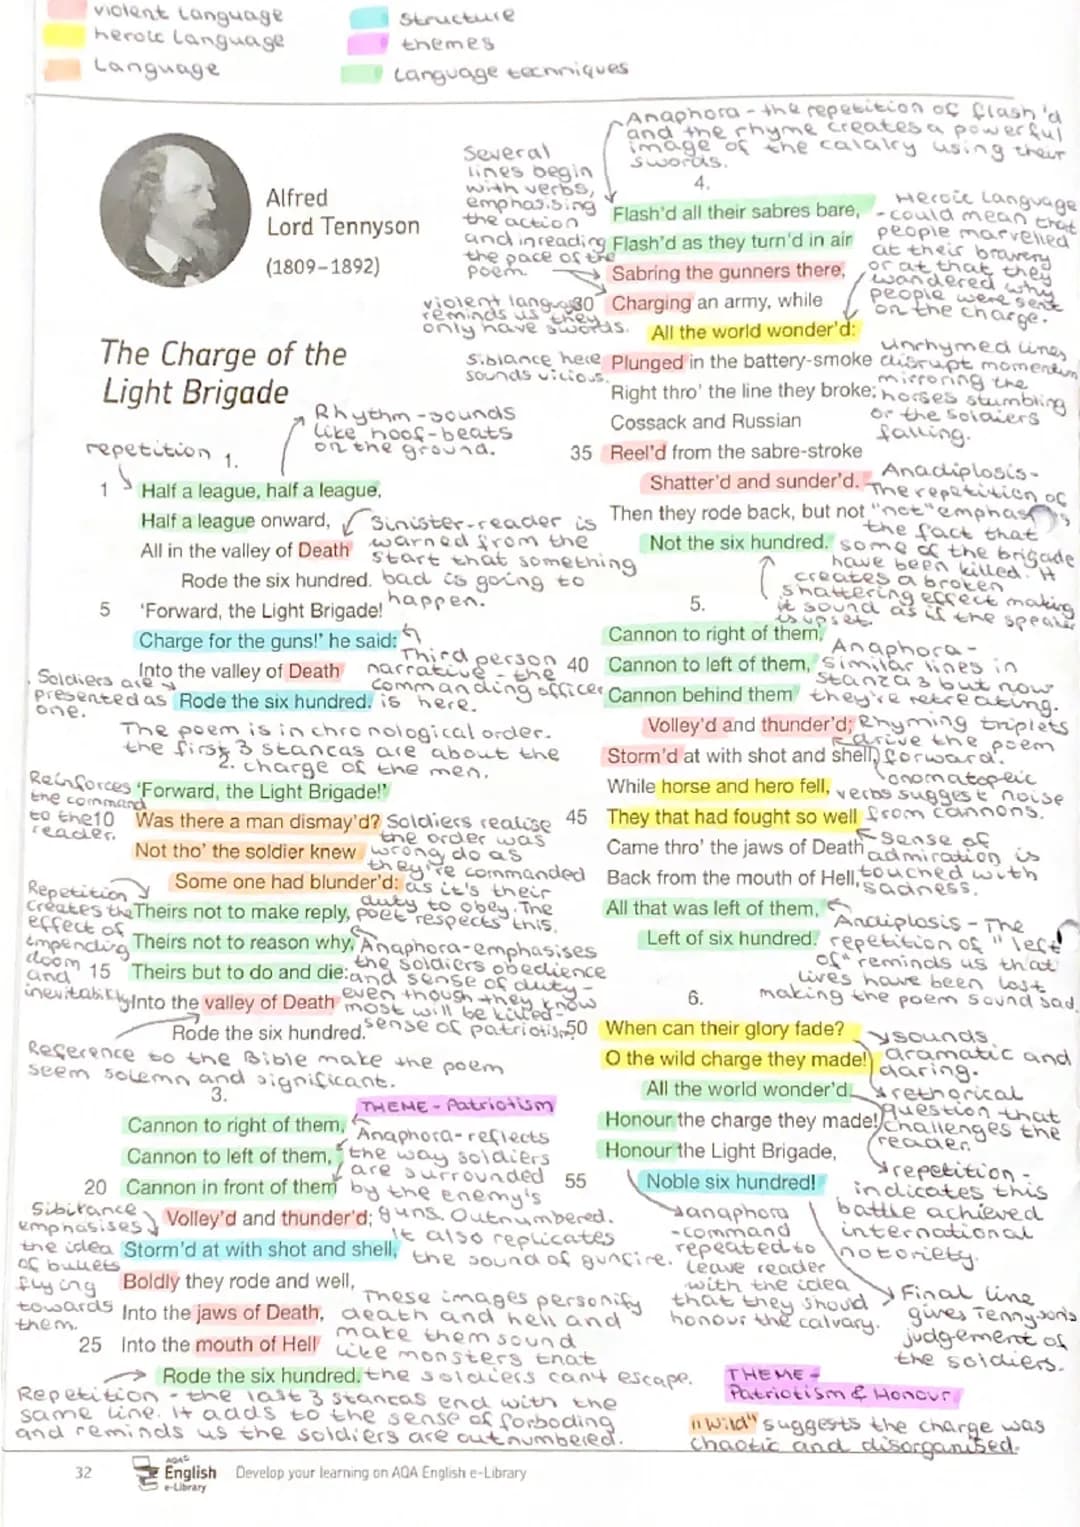 violent language
heroic language
Language
structure
themes
Language tecnniques
Alfred
Lord Tennyson
(1809–1892)
The Charge of the
Light Brigade
Rhythm - sounds
like hoof-beats
on the ground.
repetition
1.
1 Half a league, half a league,
Half a league onward,
All in the valley of Death
Rode the six hundred.
Sinister - reader is
warned from the
start that something
bad is going to
happen.
5 'Forward, the Light Brigade!
Charge for the guns!' he said:
Into the valley of Death
Rode the six hundred.
Third person
narrative - the
commanding officer
is here.
Soldiers are
presented as
one.
The poem is in chronological order.
the first 3 stancas are about the
charge of the men.
2.
Reinforces
the command
to the
reader.
'Forward, the Light Brigade!'
10 Was there a man dismay'd?
Not tho' the soldier knew
Some one had blunder'd:
Theirs not to make reply,
Theirs not to reason why,
15 Theirs but to do and die:
Into the valley of Death
Rode the six hundred.
Soldiers realise
the order was
wrong do as
they're commanded
as it's their
duty to obey. The
poet respects this.
Repetition
creates the
effect of
impending
doom
and
inevitability
Anaphora - emphasises
the soldiers obedience
and sense of duty -
even though they know
most will be killed -
sense of patriotism
Reference to the Bible make the poem
seem solemn and significant.
3.
THEME - Patriotism
Cannon to right of them,
Cannon to left of them,
20 Cannon in front of them
Volley'd and thunder'd;
Storm'd at with shot and shell,
Boldly they rode and well,
Into the jaws of Death,
25 Into the mouth of Hell
Rode the six hundred.
Anaphora - reflects
the way soldiers
are surrounded
by the enemy's
guns. Outnumbered.
It also replicates
the sound of gunfire.
Sibitance
emphasises
the idea
of bullets
flying
towards
them.
These images personify
death and hell and
make them sound
like monsters that
the soldiers cant escape.
Repetition - the last 3 stancas end with the
same line. It adds to the sense of forboding
and reminds us the soldiers are outnumbered.
Anaphora - the repetition of flash'd
and the rhyme creates a powerful
image of the calalry using their
swords.
Several
lines begin
with verbs,
emphasising
the action
and inreading
the pace of the
poem.
4.
Flash'd all their sabres bare,
Flash'd as they turn'd in air
Sabring the gunners there,
30 Charging an army, while
All the world wonder'd:
Plunged in the battery-smoke
Right thro' the line they broke;
Cossack and Russian
35 Reel'd from the sabre-stroke
Shatter'd and sunder'd.
Then they rode back, but not
Not the six hundred.
Heroic Language
- could mean that
people marvelled
at their bravery
or at that they
wandered why
people were sent
on the charge.
violent language
reminds us they
only have swords.
Siblance here
sounds vicious.
Unrhymed lines
disrupt momentum
mirroring the
horses stumbling
or the soldiers
falling.
Anadiplosis-
The repetition of
"not" emphasises
the fact that
some of the brigade
have been killed. It
creates a broken
shattering effect making
it sound as if the speaker
is upset.
5.
Cannon to right of them,
40 Cannon to left of them,
Cannon behind them
Volley'd and thunder'd;
Storm'd at with shot and shell,
While horse and hero fell,
45 They that had fought so well
Came thro' the jaws of Death
Back from the mouth of Hell,
All that was left of them,
Left of six hundred.
Anaphora -
similar lines in
stanza 3 but now
they're retreating.
Rhyming triplets
drive the poem
forward.
onomatopeic
verbs suggest noise
from cannons.
sense of
admiration is
touched with
sadness.
Andiplosis - The
repetition of "left
of" reminds us that
lives have been lost
making the poem sound sad
6.
50 When can their glory fade?
O the wild charge they made!
All the world wonder'd.
Honour the charge they made!
Honour the Light Brigade,
55 Noble six hundred!
sounds
dramatic and
daring.
rethorical
question that
challenges the
reader.
repetition -
indicates this
battle achieved
international
notoriety.
anaphora
- command
repeated to
leave reader
with the idea
that they should
honour the calvary.
Final line
gives Tennysons
judgement of
the soldiers.
THEME -
Patriotism & Honour
"Wild" suggests the charge was
chaotic and disorganised.
32
AQA
English
e-Library
Develop your learning on AQA English e-Library